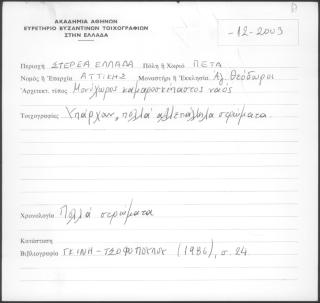 ΑΚΑΔΗΜΙΑ ΑΘΗΝΩΝ
ΕΥΡΕΤΗΡΙΟ ΒΥΖΑΝΤΙΝΩΝ ΤΟΙΧΟΓΡΑΦΙΩΝ
ΣΤΗΝ ΕΛΛΑΔΑ
-12-2003
Περιοχή ΣΤΕΡΕΑ ΕΛΛΑΔΑ Πόλη ἤ Χωριό ΠΕΤΑ
Νομός ἤ Ἐπαρχία ΑΤΤΙΚΗΣ Μοναστήρι ἤ Ἐκκλησία Ἁγ. Θεόδωροι
Ἀρχιτεκτ. τύπος Μονόχωρος καμαροσκέπαστος ναός
Τοιχογραφίες Υπάρχουν πολλά αλλεπάλληλα στρώματα
Χρονολογία Πολλά στρώματα
Κατάσταση
Βιβλιογραφία ΓΚΙΝΗ-ΤΣΟΦΟΠΟΥΛΟΥ (1986), σ. 24